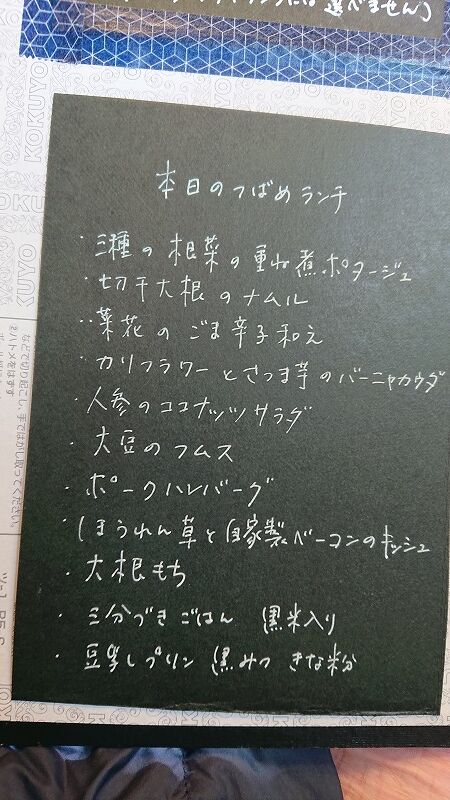 選べません)
KOKUYO
KOKUYO
本日のつばめランチ
・三種の根菜の重ね煮ポタージュ
・切干大根のナムル
・菜花のごま辛子和え
・カリフラワーとさつま芋のバーニャカウダ
・人参のココナッツサラダ
・大豆のフムス
・ポークハンバーグ
・ほうれん草と自家製ベーコンのキッシュ
・大根もち
・三分づきごはん 黒米入り
・豆乳プリン 黒みつ きな粉